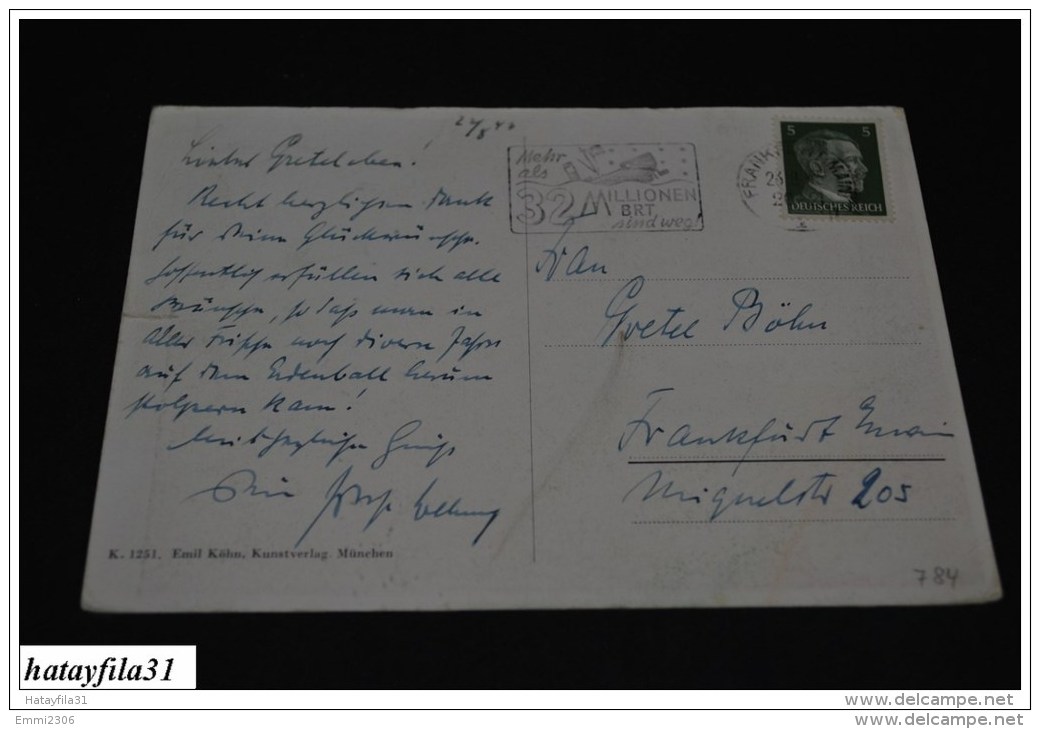 Liebes Gretelchen!
Recht herzlichen Dank
für Deine Glückwünsche.
Hoffentlich erfüllen sich alle
Wünsche, so daß man in
aller Frische noch diverse Jahre
auf dem Erdenball herum
stolpern kann!
herzliche
Dein
K. 1251. Emil Köhn, Kunstverlag München
Mehr
als
32 MILLIONEN
BRT
sind weg!
FRANK
5 5
DEUTSCHES REICH
Frau
Gretel Böhm
Frankfurt Main
Miquelstr 205
784
hatayfila31
Hatayfila31
Emmi2306
www.delcampe.net
www.delcampe.net